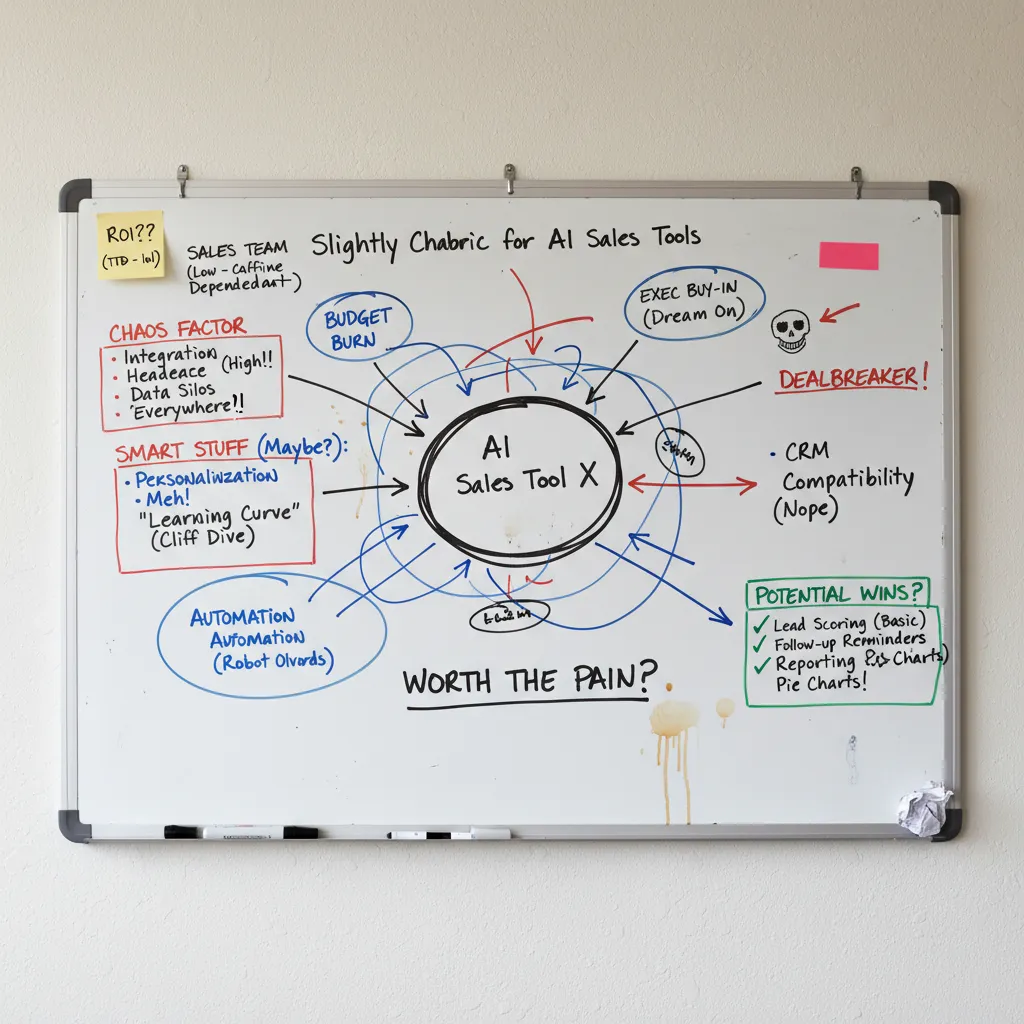 ROI??
(TTD - lol)
SALES TEAM
(Low - Caffine
Dependedant)
Slightly Chabric for AI Sales Tools
BUDGET
BURN
EXEC BUY-IN
(Dream On)
CHAOS FACTOR
• Integration
• Headeace (High!!
• Data Silos
• 'Everywhere'!!
DEALBREAKER!
SMART STUFF (Maybe?):
• Peksonalinzation
• Meh!
"Learning Curve"
(Cliff Dive)
AI
Sales Tool X
• CRM
Compatibility
(Nope)
AUTOMATION
AUTOMATION
(Robot Olvords)
POTENTIAL WINS?
✓ Lead Scoring (Basic)
✓ Follow-up Reminders
✓ Reporting Charts)
Pie Charts!
WORTH THE PAIN?